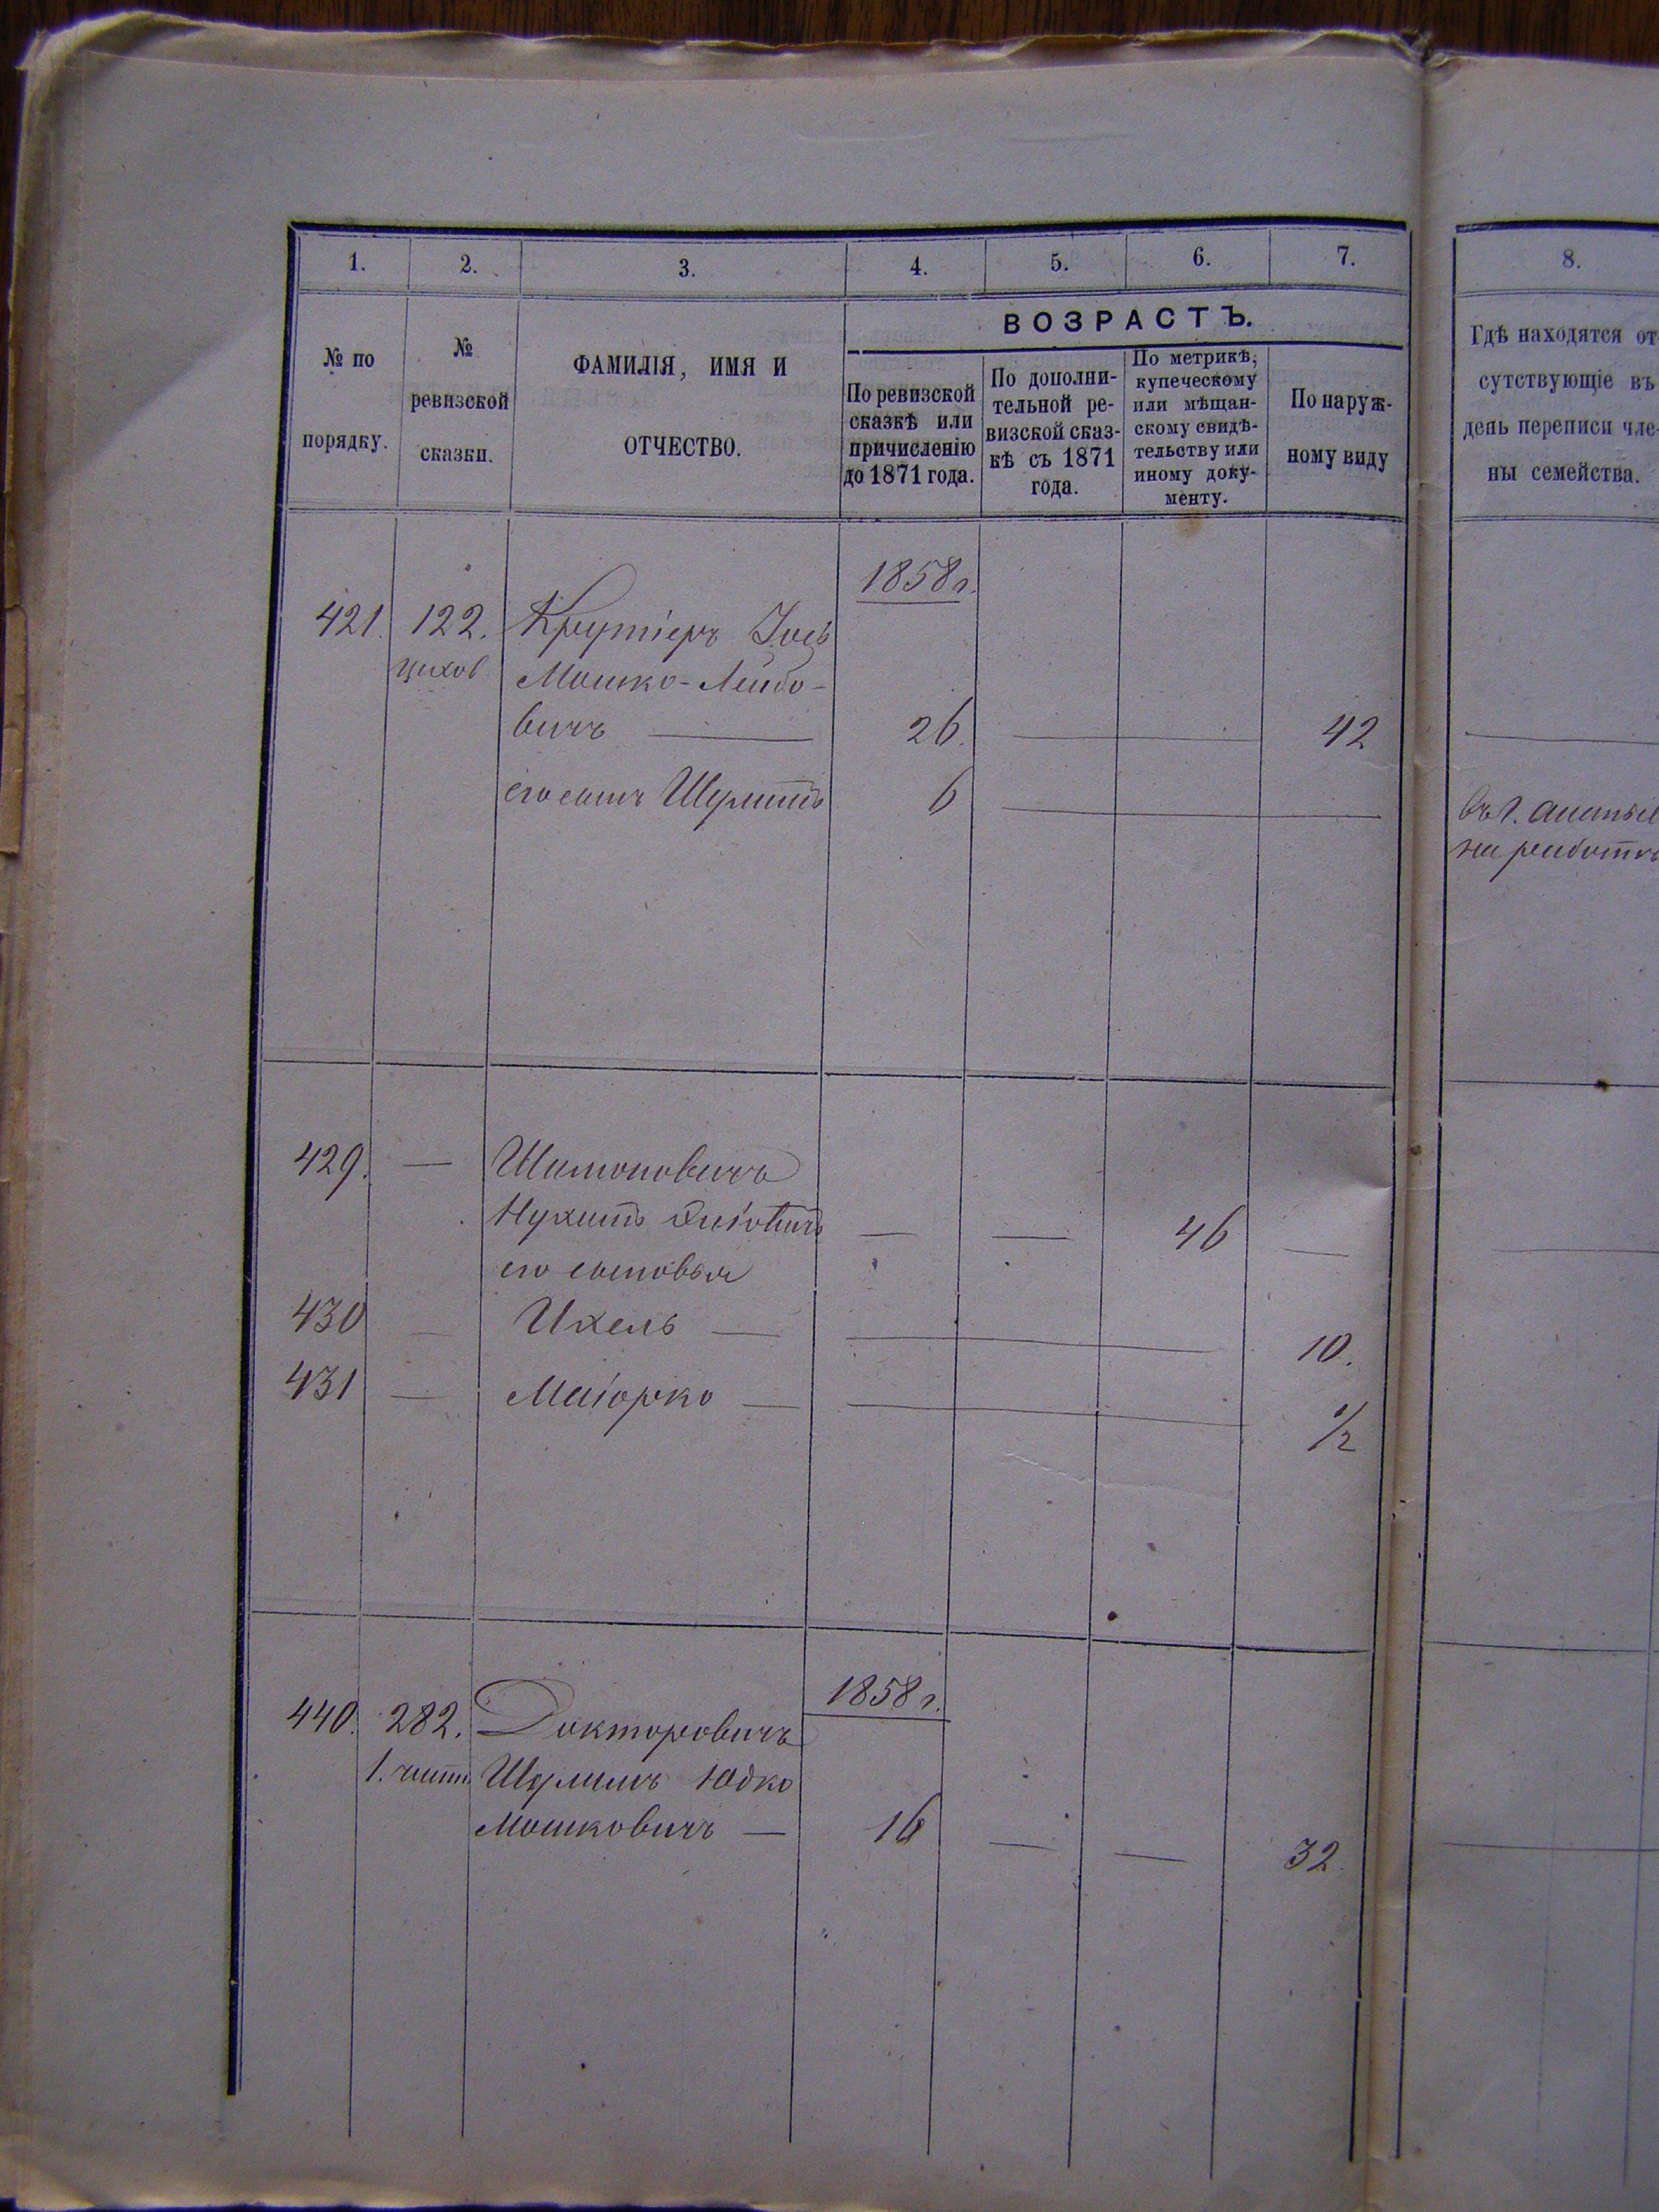 1. 2. 3. 4. 5. 6. 7. 8.
№ по
порядку.
№
ревизской
сказки.
ФАМИЛІЯ, ИМЯ И
ОТЧЕСТВО.
ВОЗРАСТЪ.
По ревизской
сказкѣ или
причисленію
до 1871 года.
По дополни-
тельной ре-
визской сказ-
кѣ съ 1871
года.
По метрикѣ,
купеческому
или мѣщан-
скому свидѣ-
тельству или
иному доку-
менту.
По наруж-
ному виду
Гдѣ находятся от
сутствующіе въ
день переписи чле-
ны семейства.
1858 г.
421. 122. Крутіеръ Іось
цехов Мошко-Лейбо-
вичъ — 26. — — 42
его сынъ Шулимъ 6 —
въ г.
на работѣ
429. — Шимоновичъ
Нухимъ — — 46 —
его сыновья
430 — Ихель — — 10.
431 — Маіорко — — 1/2
1858 г.
440. 282. Докторовичъ
1. части Шулимъ Юдко
Мошковичъ — 16 — — 32